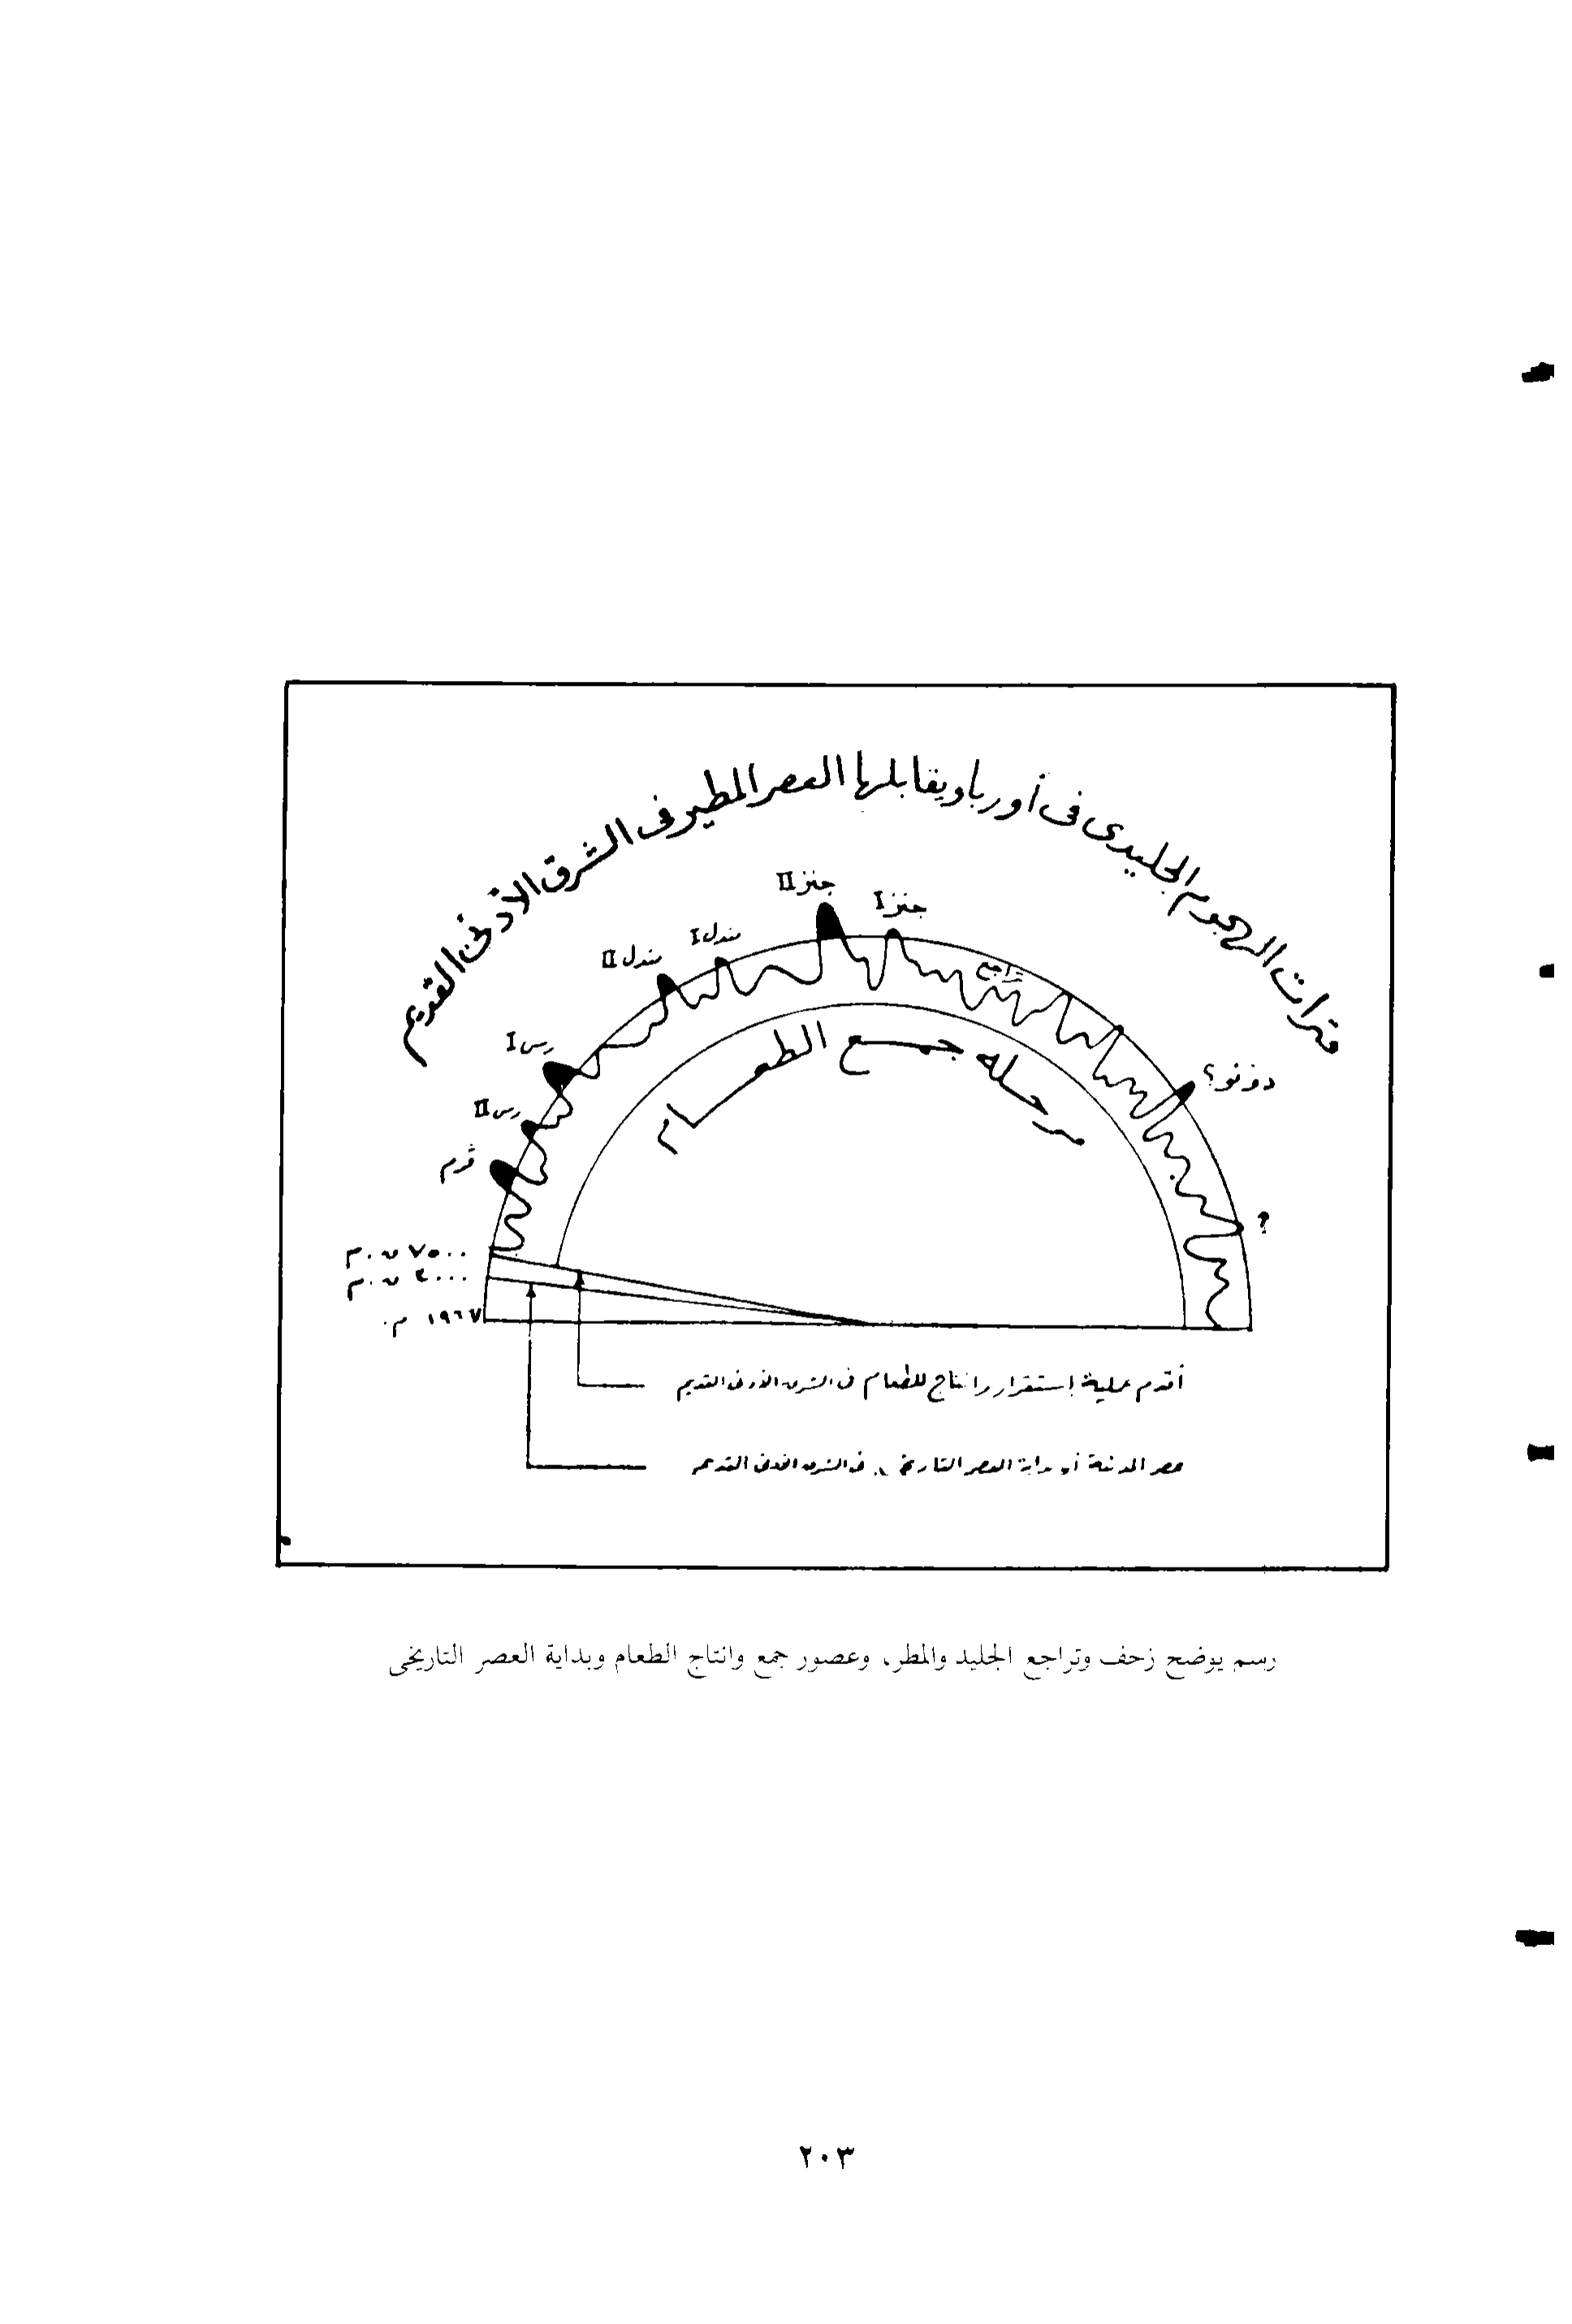 فترات الهجوم الجليدى فى أوربا ويقابلها العصر المطير فى الشرق الأدنى القديم
جنز II
جنز I
مندل I
مندل II
تراجع
رس I
رس II
ڤرم
دونو؟
؟
مرحلة جمع الطعام
٧٥٠٠ ق.م
٣٠٠٠ ق.م
١٩٦٧ م.
أقدم عملية إستقرار وانتاج للطعام فى الشرق الأدنى القديم
عصر المدنية أو بداية العصر التاريخى فى الشرق الأدنى القديم
رسم يوضح زحف وتراجع الجليد والمطر، وعصور جمع وانتاج الطعام وبداية العصر التاريخى
٢٠٣